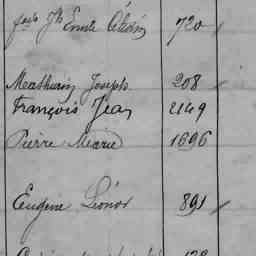 Jh Emile 720
Mathurin Joseph 208
François Jean 2149
Pierre Marie 1696
Eugène Léonor 891